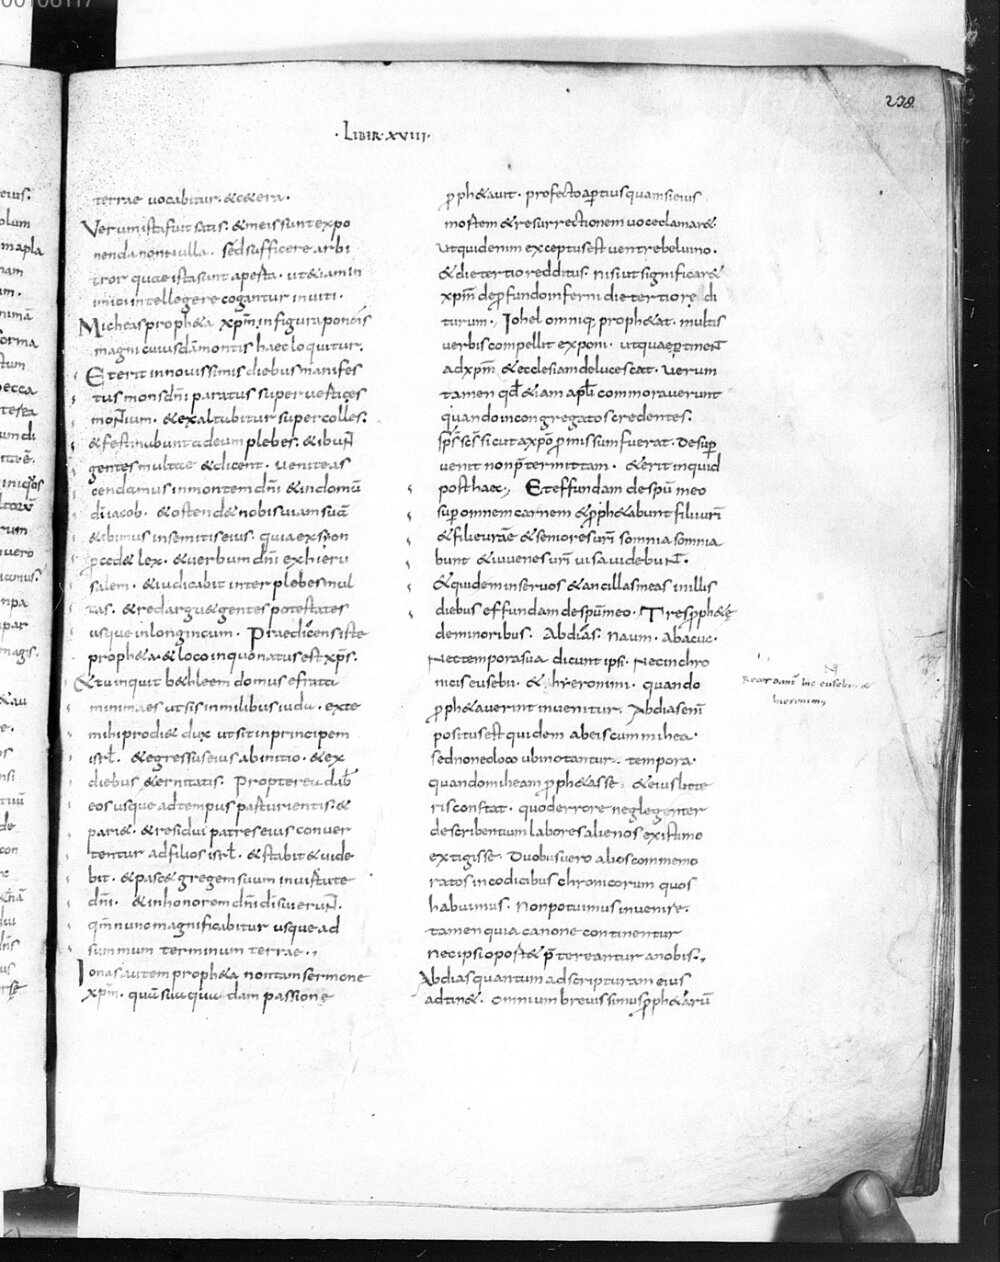 238
·LIBER·XVIII·
terrae vocabitur. & cetera.
Verum ista fuit satis. & meis sunt expo
nenda nonnulla. sed sufficere arbi
tror quae ista sunt aperta. ut etiam in
imici intellegere cogantur inviti.
Micheas propheta xpm in figura ponens
magni cuiusdā montis haec loquitur.
Et erit in novissimis diebus manifes
tus mons dñi paratus super vertices
montium. & exaltabitur super colles.
& festinabunt ad eum plebes. & ibuñt
gentes multae & dicent. venite as
cendamus in montem dñi & in domū
dī iacob. & ostendet nobis viam suā
& ibimus in semitis eius. quia ex sion
pcedet lex. & verbum dñi ex hieru
salem. & iudicabit inter plebes mul
tas. & redarguet gentes potestates
usque in longincum. Praedicens iste
propheta & loco in quo natus est xps.
Et tu inquit bethleem domus efrata
minima es ut sis in milibus iuda. ex te
mihi prodiet dux ut sit in principem
isrl. & egressus eius ab initio. & ex
diebus eternitatis. Propterea dab
eos usque ad tempus parturientis. &
pariet. & residui patres eius conver
tentur ad filios isrl. & stabit & vide
bit. & pascet gregem suum in virtute
dñi. & in honorem dñi di sui eruñt.
qm nunc magnificabitur usque ad
summum terminum terrae.,
Ionas autem propheta non tam sermone
xpm. quā sua quadam passione
pphetavit. profecto aptius quam si eius
mortem & resurrectionem voce clamaret
ut quid enim exceptus est ventre beluino.
& die tertio redditus. nisi ut significaret
xpm de pfundo inferni die tertio redi
turum., Iohel omniq: prophetat. multis
verbis compellit exponi. ut quae ptineñt
ad xpm & ecclesiam delucescat. verum
tamen qd etiam apli commoraverunt
quando in congregatos credentes.
sps scs sicut a xpo pmissum fuerat. desup
venit non ptermittam. & erit inquid
post haec., Et effundam de spu meo
sup omnem carnem & pphetabunt filii urī
& filie vrae & seniores urī somnia somnia
bunt & iuvenes urī visa videbuñt.
& quidem in servos & ancillas meas in illis
diebus effundam de spu meo. Tres pphete
de minoribus. Abdias. Naum. Abacuc.
Nec tempora sua dicunt ipsi. Nec in chro
nicis eusebii. & hyeronimi. quando
pphetaverint invenitur. Abdias enī
positus est quidem ab eis cum mihea.
sed non eo loco ubi notantur. tempora.
quando miheam pphetasse. & eius litte
ris constat. quod errore neglegenter
describentum labores alienos existimo
extigisse. Duobus vero alios commemo
ratos in codicibus chronicorum quos
habuimus. Non potuimus invenire.
tamen quia canone continentur
nec ipsi oportet ptereantur a nobis.,
Abdias quantum ad scripturam eius
adtinet. omnium brevissimus pphetarū
hieronimi